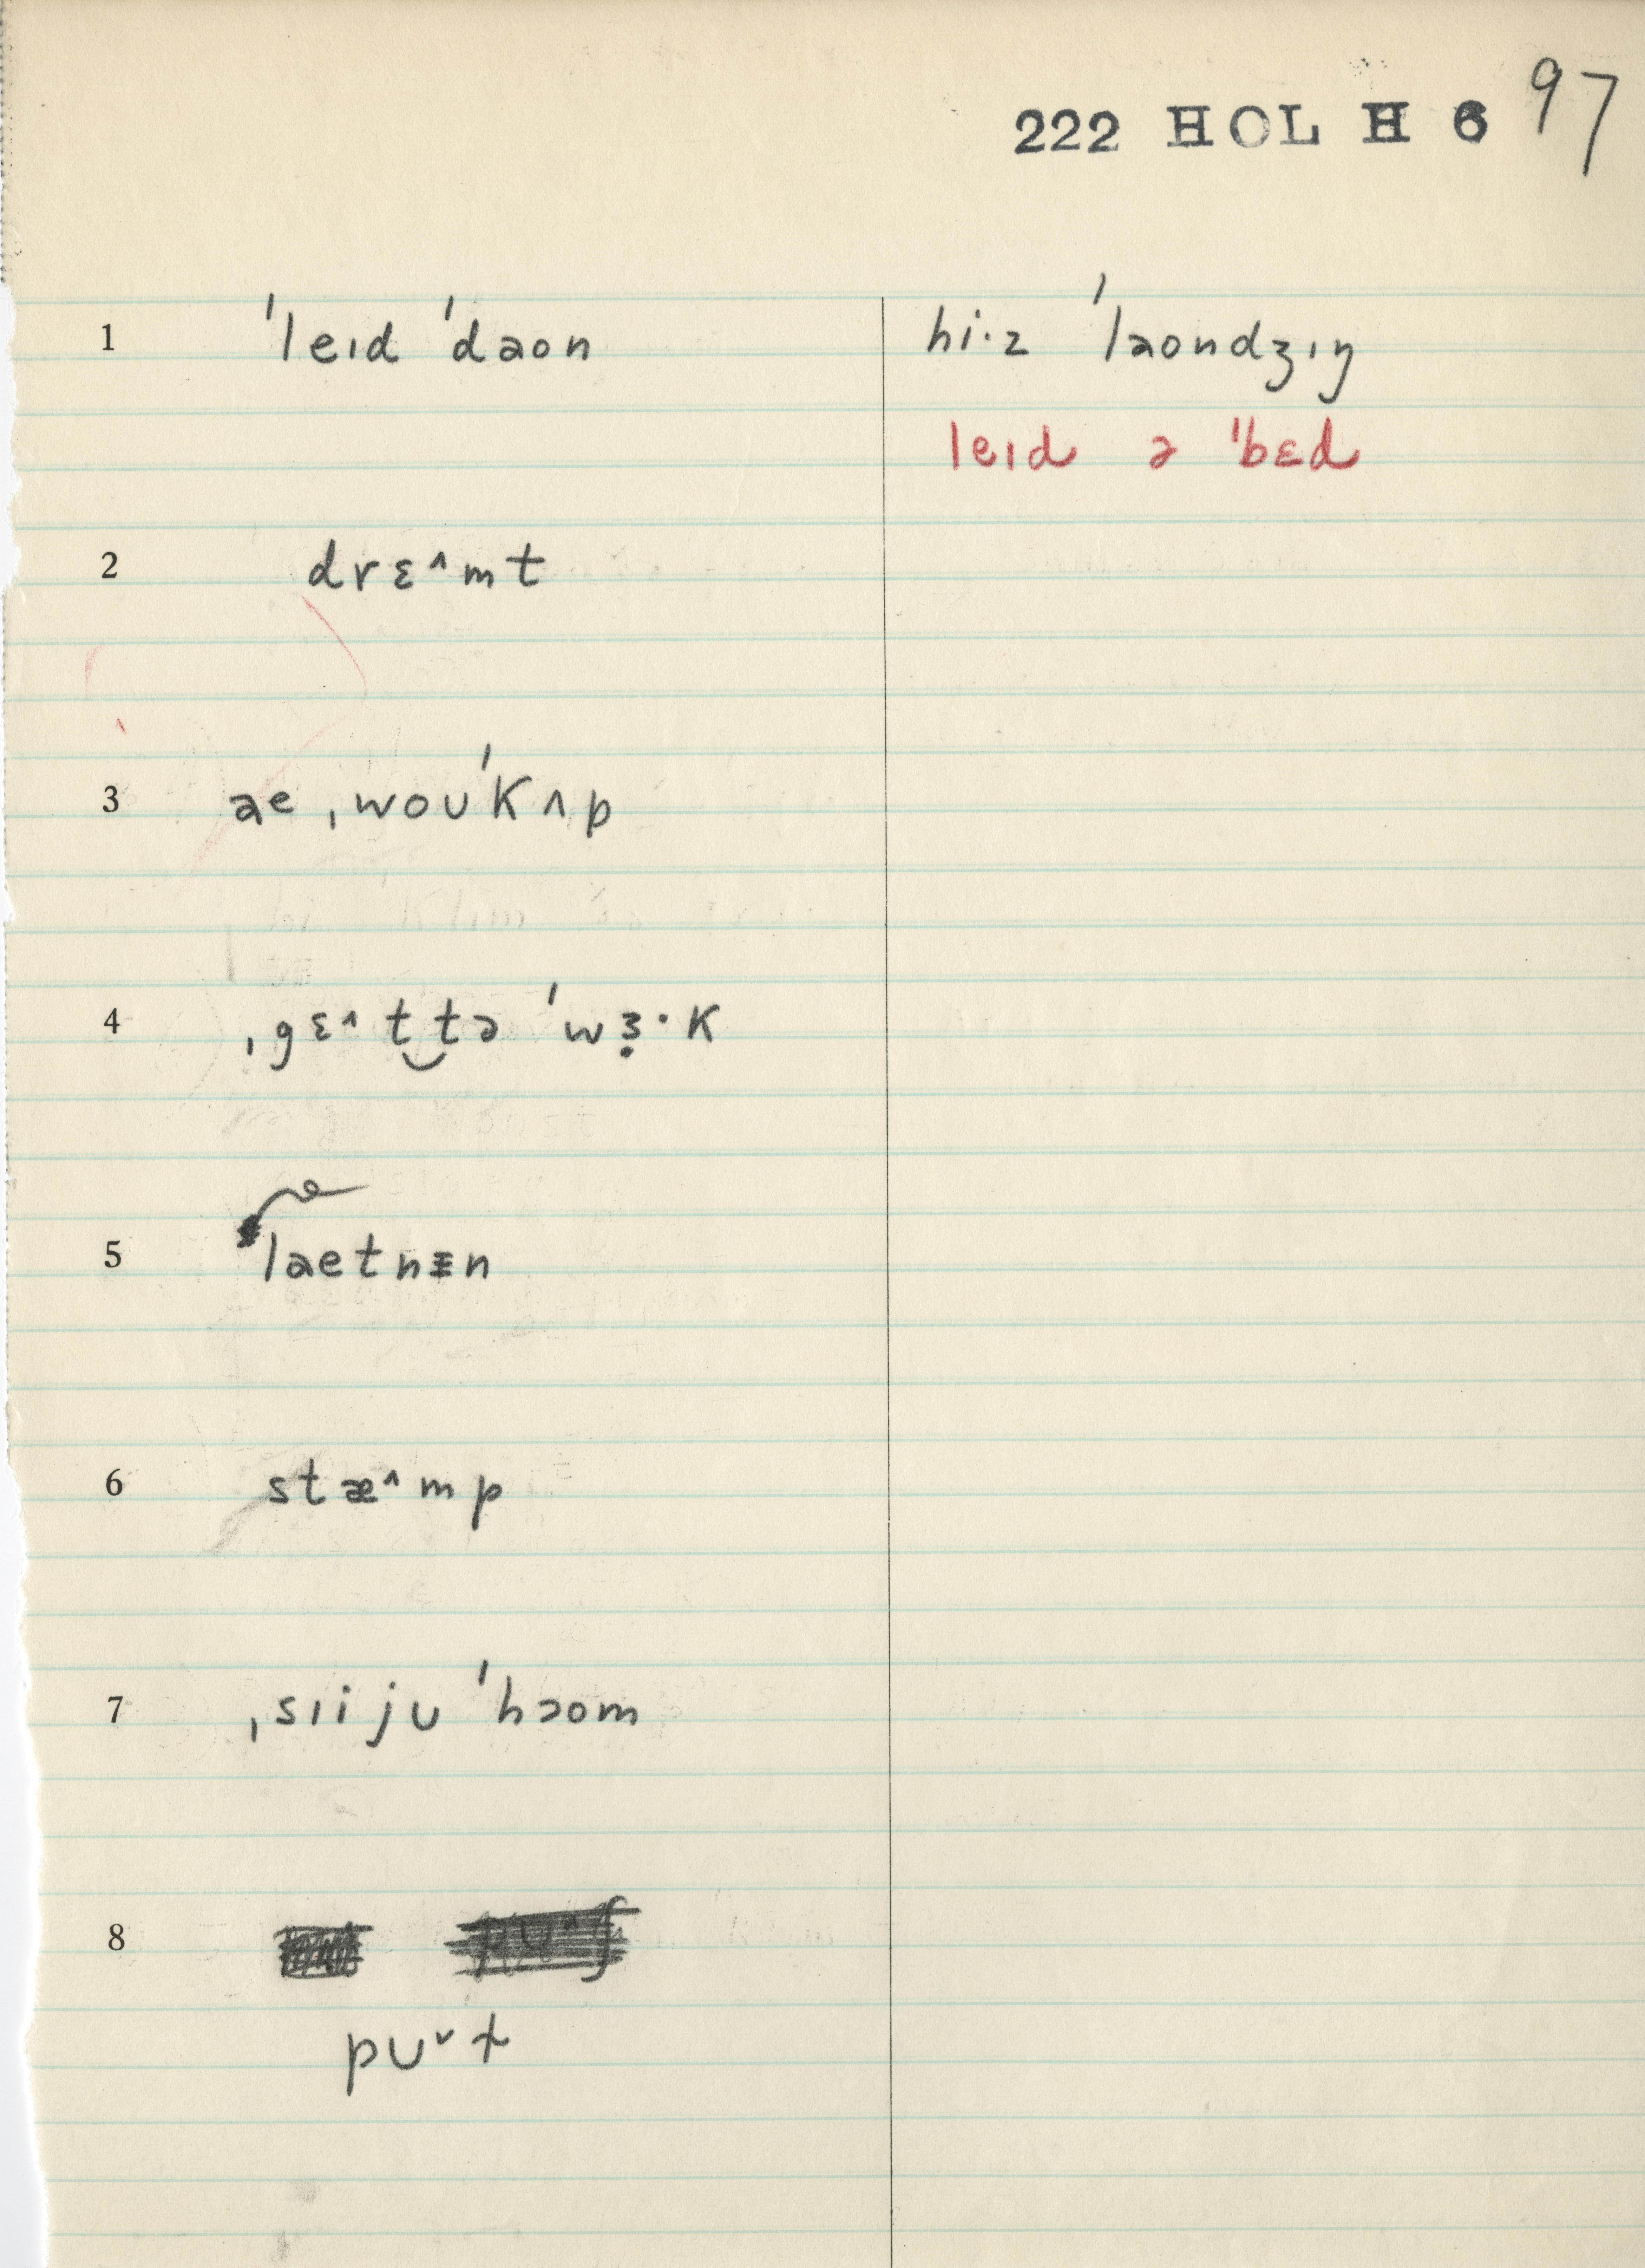 222 HOL H 6 97
1 ˈleɪd ˈdaon hi·z ˈlaondʒɪŋ
leɪd ə ˈbɛd
2 drɛ^mt
3 ae ˌwoʊˈkʌp
4 ˌgɛ^t‿tə ˈwɜ̣·k
5 laetnɪn
6 stæ^mp
7 ˌsɪi jʊ ˈhəom
8
pʊˇt